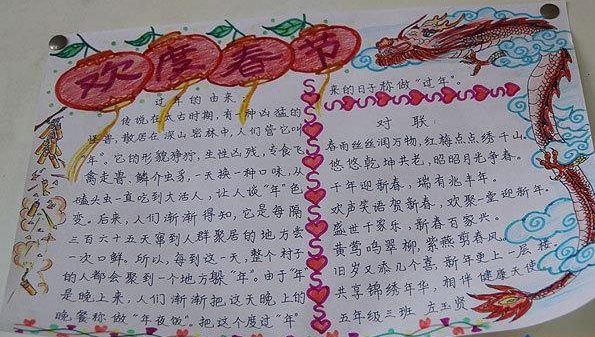 欢度春节
过年的由来:
传说在太古时期,有一种凶猛的
怪兽,散居在深山密林中,人们管它叫
“年”。它的形貌狰狞,生性凶残,专食飞
禽走兽、鳞介虫豸,一天换一种口味,从
磕头虫一直吃到大活人,让人谈“年”色
变。后来,人们渐渐得知,它是每隔
三百六十五天窜到人群聚居的地方尝
一次口鲜。所以,每到这一天,整个村子
的人都会聚到一个地方躲“年”。由于“年”
是晚上来,人们渐渐把这天晚上的
晚餐称做“年夜饭”。把这个度过“年”
来的日子称做“过年”。
对联:
春雨丝丝润万物,红梅点点绣千山,
悠悠乾坤共老,昭昭日月争春。
千年迎新春,瑞有兆丰年。
欢声笑语贺新春,欢聚一堂迎新年。
盛世千家乐,新春百家兴。
黄莺鸣翠柳,紫燕剪春风。
旧岁又添几个喜,新年更上一层楼
共享锦绣年华,相伴健康天使
五年级三班 左玉贤